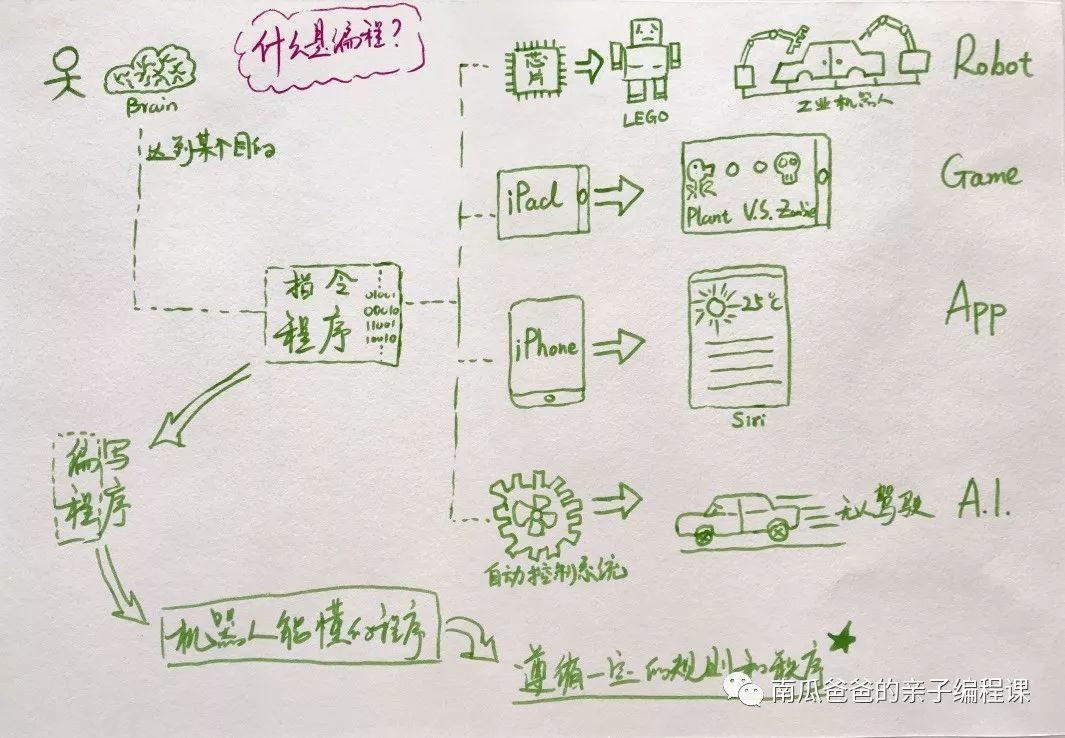 什么是编程？
Brain
达到某个目的
指令
程序
01001
00010
11001
10010
编写
程序
机器人能懂的程序
遵循一定的规则和秩序
芯片
LEGO
工业机器人
Robot
iPad
Plant V.S. Zombie
Game
iPhone
25℃
Siri
App
自动控制系统
无人驾驶
A.I.
南瓜爸爸的亲子编程课